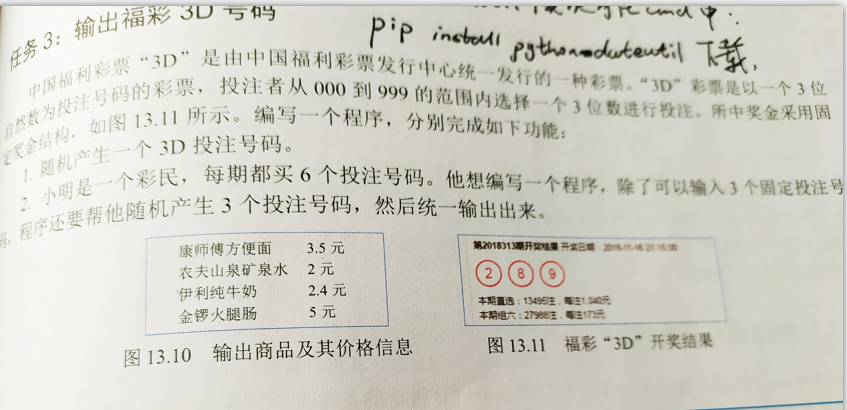 pip install python-dateutil 下载,
任务 3：输出福彩 3D 号码
中国福利彩票“3D”是由中国福利彩票发行中心统一发行的一种彩票。“3D”彩票是以一个 3 位
自然数为投注号码的彩票，投注者从 000 到 999 的范围内选择一个 3 位数进行投注。所中奖金采用固
定奖金结构，如图 13.11 所示。编写一个程序，分别完成如下功能：
1. 随机产生一个 3D 投注号码。
2. 小明是一个彩民，每期都买 6 个投注号码。他想编写一个程序，除了可以输入 3 个固定投注号
码，程序还要帮他随机产生 3 个投注号码，然后统一输出出来。
康师傅方便面 3.5 元
农夫山泉矿泉水 2 元
伊利纯牛奶 2.4 元
金锣火腿肠 5 元
图 13.10 输出商品及其价格信息
第2018313期开奖结果 开奖日期：2018-11-16 21:15:00
2 8 9
本期直选：13495注，每注1,040元
本期组六：27988注，每注173元
图 13.11 福彩“3D”开奖结果